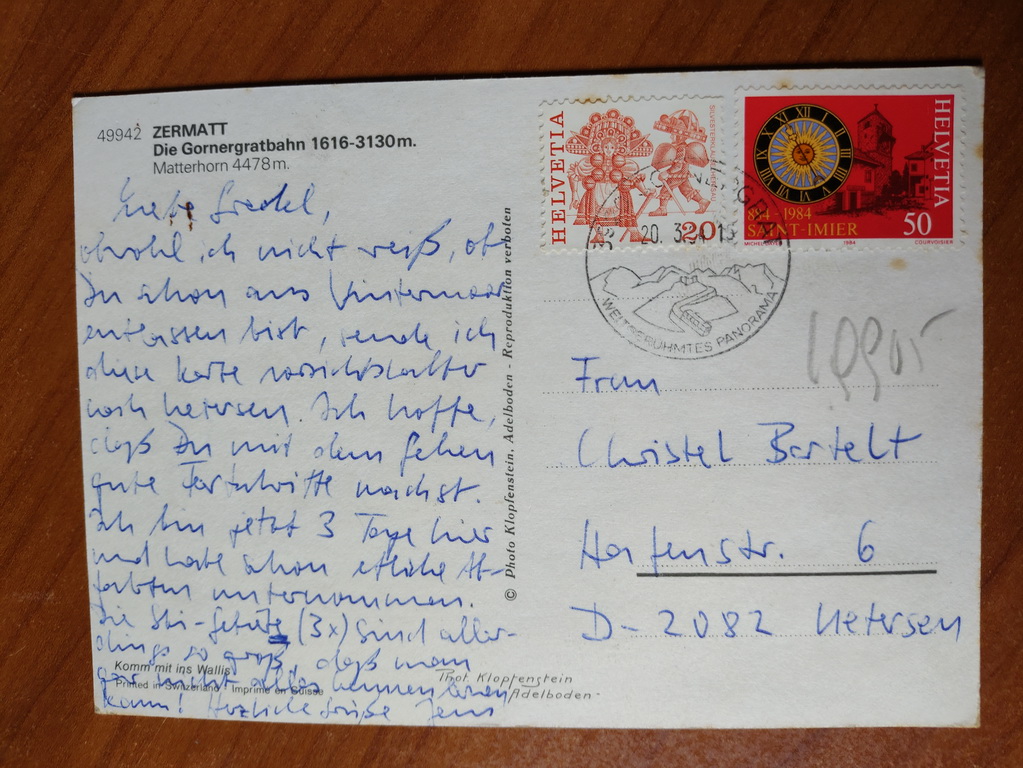 49942 ZERMATT
Die Gornergratbahn 1616-3130m.
Matterhorn 4478m.
obwohl ich nicht weiß, ob
Du schon aus
entlassen bist, sende ich
diese Karte vorsichtshalber
nach Uetersen. Ich hoffe,
daß Du mit dem Gehen
gute Fortschritte machst.
Ich bin jetzt 3 Tage hier
und habe schon etliche Ab-
fahrten unternommen.
Die Ski-Gebiete (3x) sind aller-
dings so groß, daß man
gar nicht alles kennenlernen
kann! Herzliche Grüße Jens
Komm mit ins Wallis
Printed in Switzerland · Imprimé en Suisse
Phot. Klopfenstein
Adelboden
© Photo Klopfenstein, Adelboden - Reproduktion verboten
HELVETIA
20
HELVETIA
884-1984
SAINT-IMIER
50
1984
COURVOISIER
20. 3.84
WELTBERÜHMTES PANORAMA
Frau
Christel Bartelt
Hafenstr. 6
D-2082 Uetersen